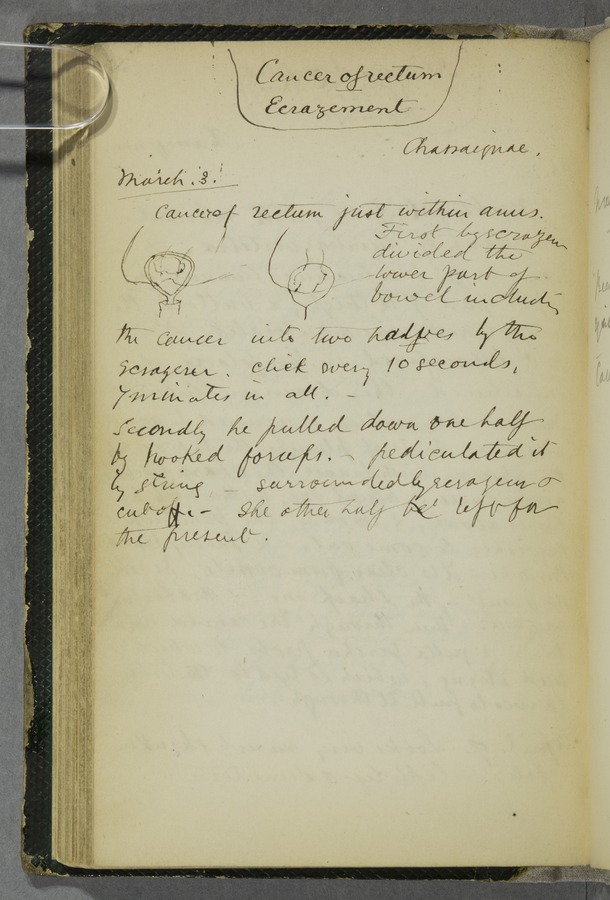 Cancer of rectum
Ecrazement
Chassaignac.
March. 3.
Cancer of rectum just within anus.
First by ecrazeur
divided the
lower part of
bowel including
the cancer into two halves by the
ecrazeur. click every 10 seconds,
7 minutes in all. -
Secondly he pulled down one half
by hooked forceps. - pediculated it
by string - surrounded by ecrazeur &
cut off. - The other half he left for
the present.